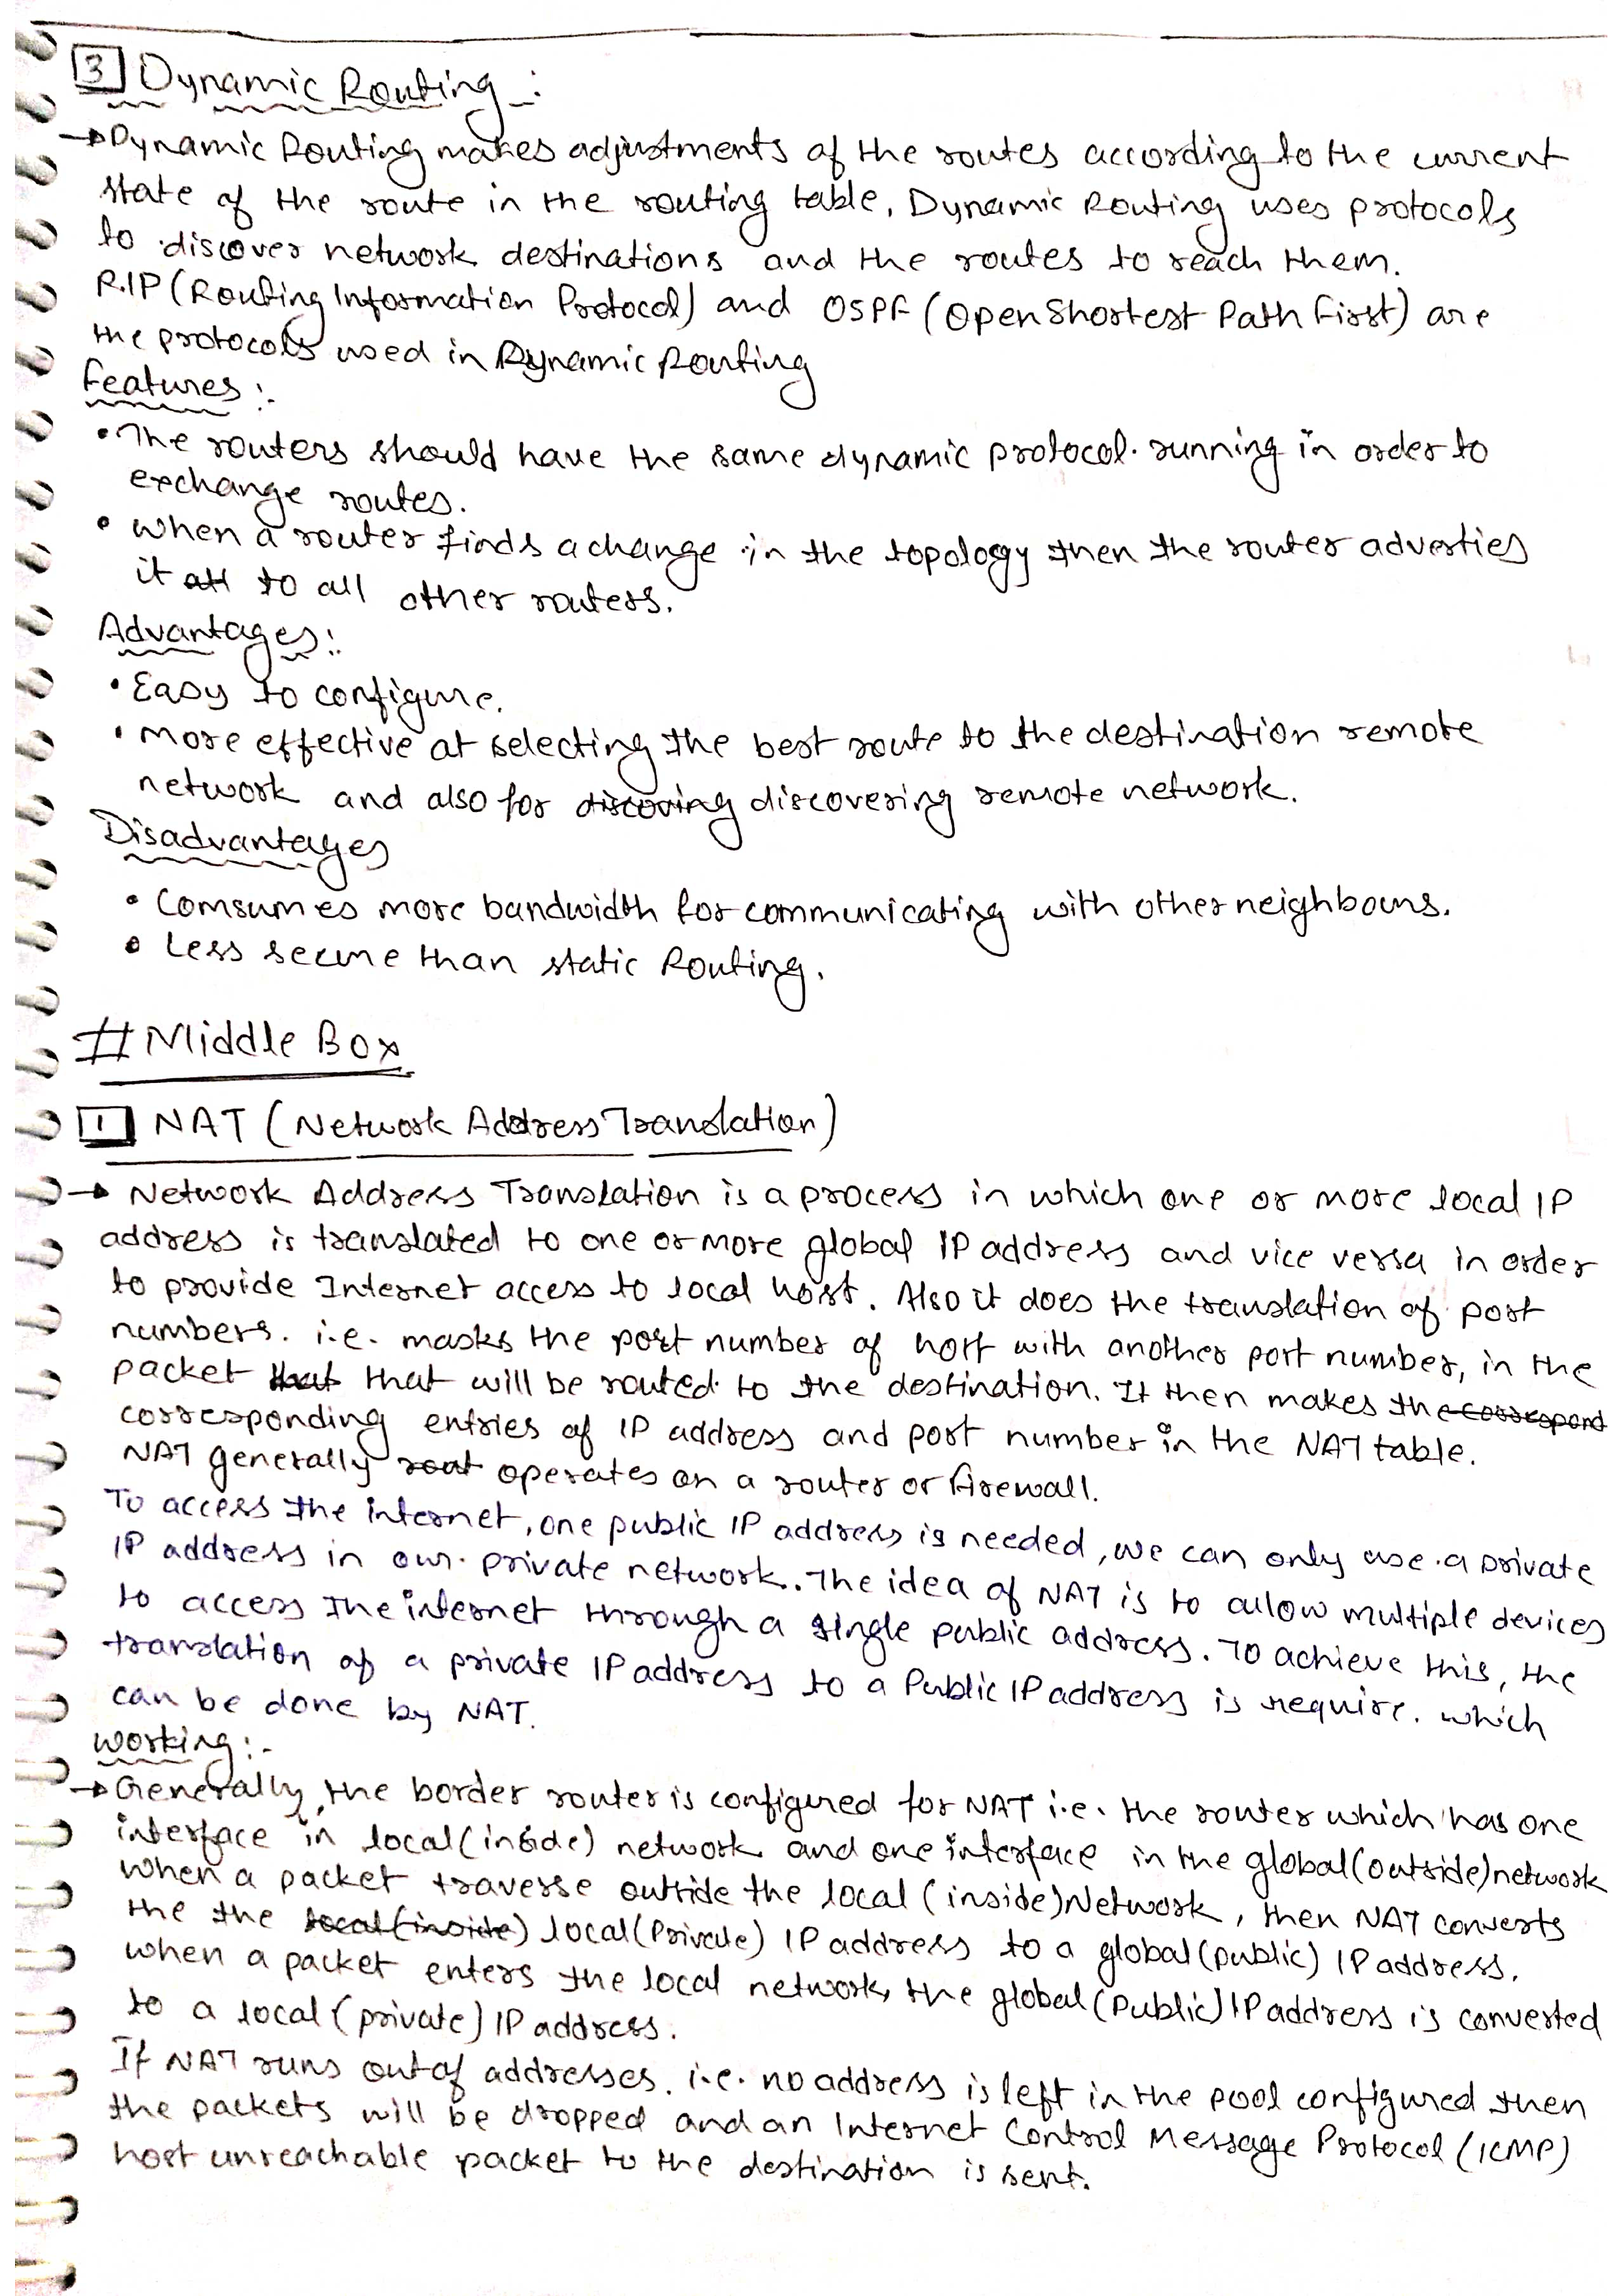 3 Dynamic Routing :
→ Dynamic Routing makes adjustments of the routes according to the current
state of the route in the routing table. Dynamic Routing uses protocols
to discover network destinations and the routes to reach them.
R.IP (Routing Information Protocol) and OSPF (Open Shortest Path First) are
the protocols used in Dynamic Routing
Features :-
• The routers should have the same dynamic protocol. running in order to
exchange routes.
• When a router finds a change in the topology then the router adverties
it all to all other routers.
Advantages :
• Easy to configure.
• More effective at selecting the best route to the destination remote
network and also for discoving discovering remote network.
Disadvantages
• Comsumes more bandwidth for communicating with other neighbours.
• Less secure than static Routing.
# Middle Box
1 NAT (Network Address Translation)
→ Network Address Translation is a process in which one or more local IP
address is translated to one or more global IP address and vice versa in order
to provide Internet access to local host. Also it does the translation of port
numbers. i.e. masks the port number of host with another port number, in the
packet that that will be routed to the destination. It then makes the correspond
corresponding entries of IP address and port number in the NAT table.
NAT generally rout operates on a router or firewall.
To access the internet, one public IP address is needed, we can only use a private
IP address in our private network. The idea of NAT is to allow multiple devices
to access the internet through a single public address. To achieve this, the
translation of a private IP address to a Public IP address is require. which
can be done by NAT.
Working :-
→ Generally, the border router is configured for NAT i.e. the router which has one
interface in local (inside) network and one interface in the global (outside) network
when a packet traverse outside the local (inside) Network, then NAT converts
the the local (inside) local (Private) IP address to a global (public) IP address.
when a packet enters the local network, the global (Public) IP address is converted
to a local (private) IP address.
If NAT runs out of addresses. i.e. no address is left in the pool configured then
the packets will be dropped and an Internet Control Message Protocol (ICMP)
host unreachable packet to the destination is sent.